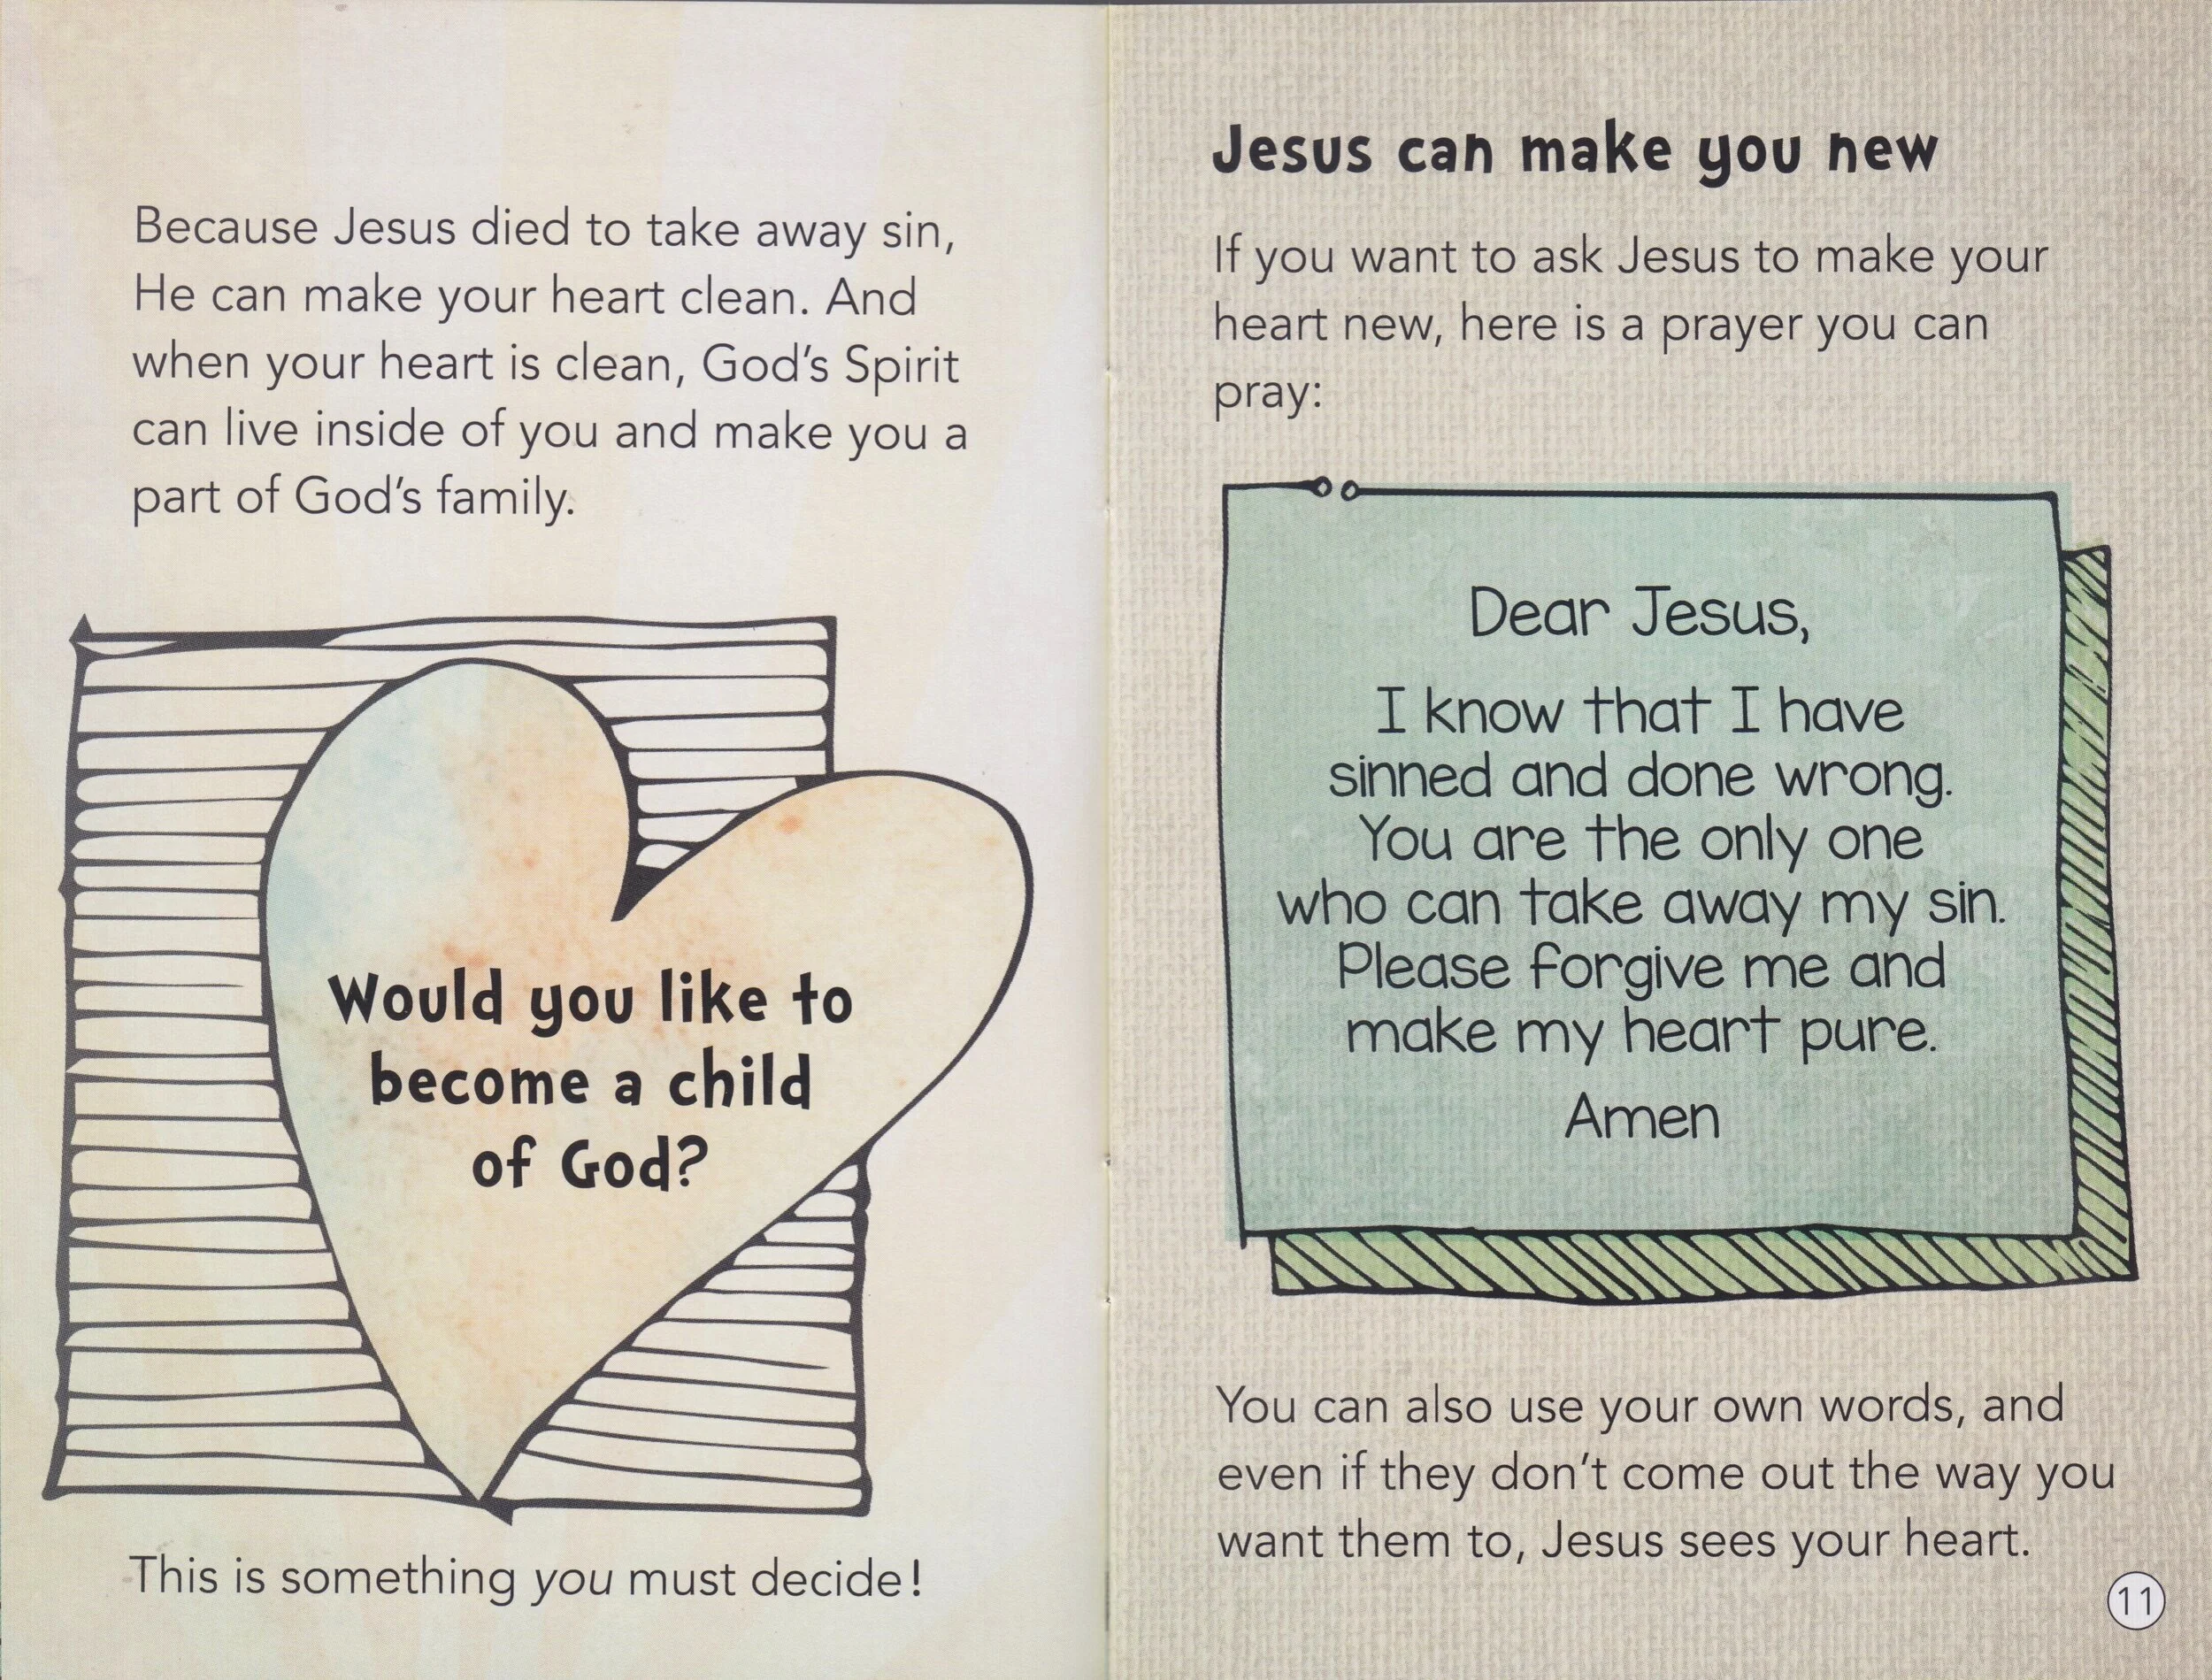 Because Jesus died to take away sin,
He can make your heart clean. And
when your heart is clean, God's Spirit
can live inside of you and make you a
part of God's family.
Would you like to
become a child
of God?
This is something you must decide!
Jesus can make you new
If you want to ask Jesus to make your
heart new, here is a prayer you can
pray:
Dear Jesus,
I know that I have
sinned and done wrong.
You are the only one
who can take away my sin.
Please forgive me and
make my heart pure.
Amen
You can also use your own words, and
even if they don't come out the way you
want them to, Jesus sees your heart.
11